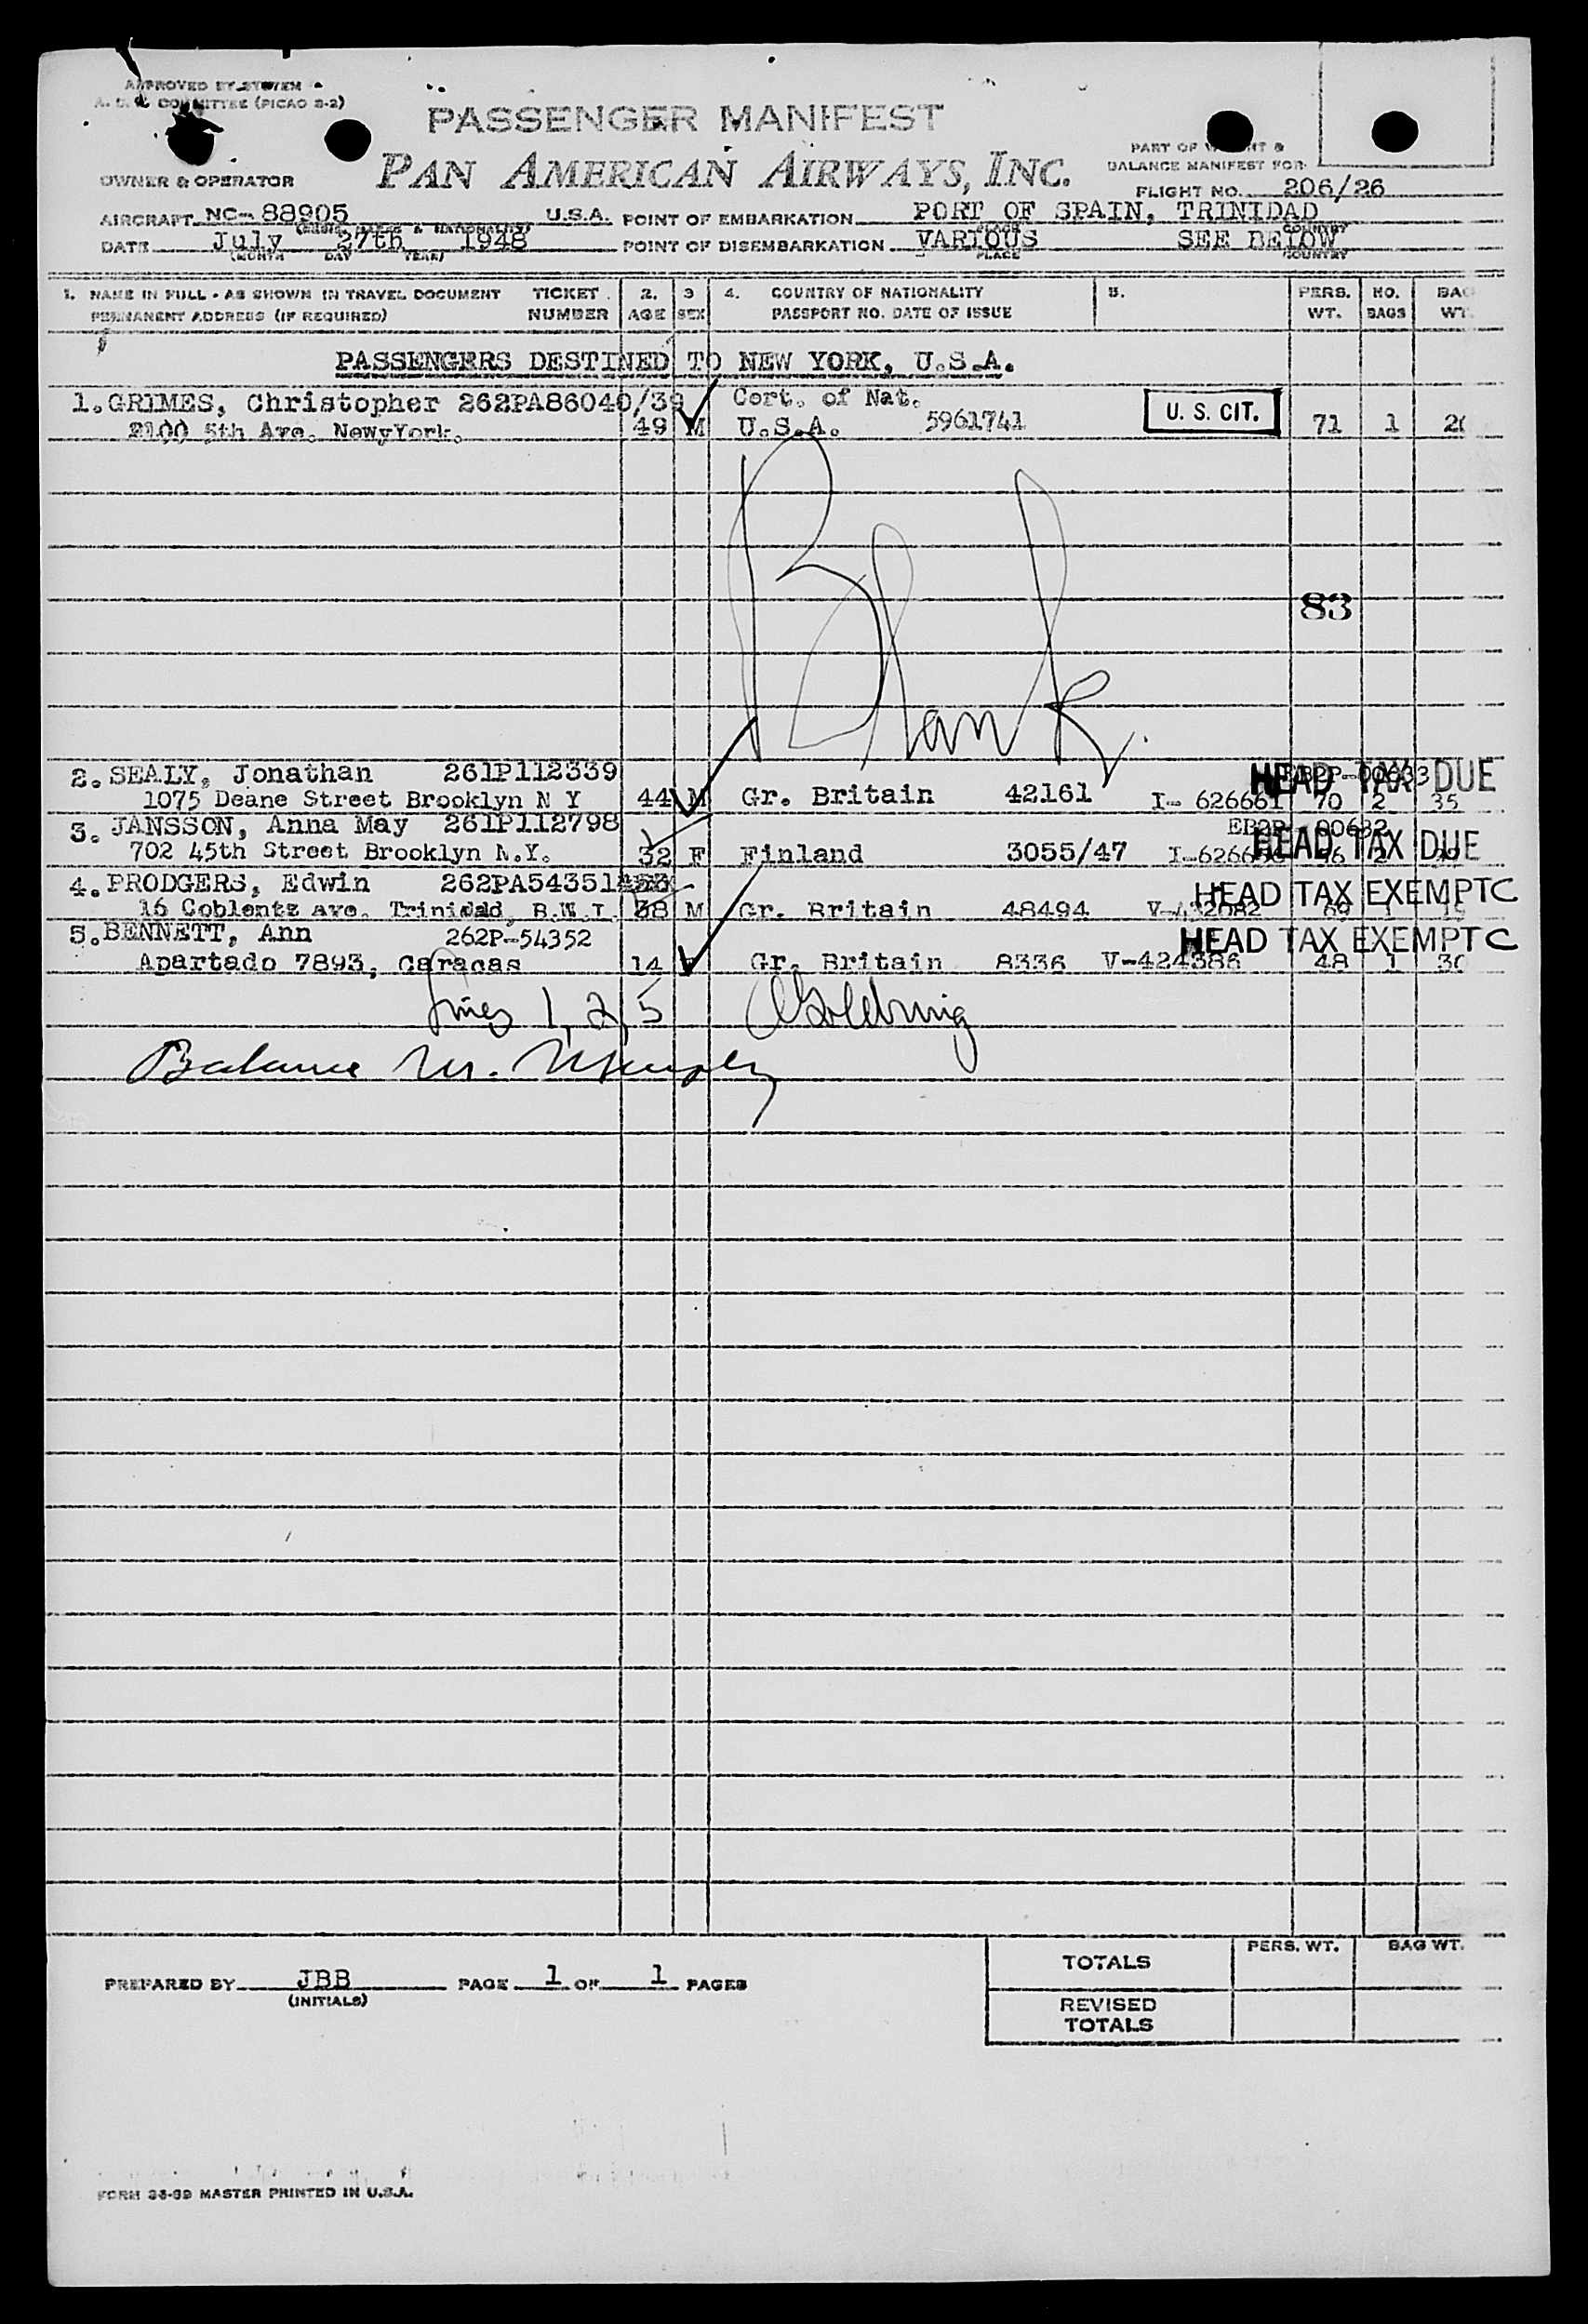 APPROVED BY SYSTEM
A. C. COMMITTEE (PICAO 2-2)
PASSENGER MANIFEST
PAN AMERICAN AIRWAYS, INC.
OWNER & OPERATOR
PART OF WEIGHT &
BALANCE MANIFEST FOR
FLIGHT NO. 206/26
AIRCRAFT NC-88905 U.S.A. POINT OF EMBARKATION PORT OF SPAIN, TRINIDAD
PLACE COUNTRY
DATE July 27th 1948 POINT OF DISEMBARKATION VARIOUS SEE BELOW
(MONTH DAY YEAR) PLACE COUNTRY
1. NAME IN FULL - AS SHOWN IN TRAVEL DOCUMENT TICKET 2. 3 4. COUNTRY OF NATIONALITY 5. PERS. NO. BAG
PERMANENT ADDRESS (IF REQUIRED) NUMBER AGE SEX PASSPORT NO. DATE OF ISSUE WT. BAGS WT.
PASSENGERS DESTINED TO NEW YORK, U.S.A.
1. GRIMES, Christopher 262PA86040/39 Cert. of Nat.
2100 5th Ave. NewyYork. 49 M U.S.A. 5961741 U. S. CIT. 71 1
Blank.
83
2. SEALY, Jonathan 261P112339 HEAD TAX DUE
1075 Deane Street Brooklyn N Y 44 M Gr. Britain 42161 I- 626661 70 2 35
3. JANSSON, Anna May 261P112798 00632
702 45th Street Brooklyn N.Y. 32 F Finland 3055/47 HEAD TAX DUE
4. PRODGERS, Edwin 262PA54351 HEAD TAX EXEMPT C
16 Coblentz Ave. Trinidad, B.W.I. 38 M Gr. Britain 48494 V-432082 69 1
5. BENNETT, Ann 262P-54352 HEAD TAX EXEMPT C
Apartado 7893, Caracas 14 Gr. Britain 8336 V-424386 48 1
Lines 1, 2, 5 Goldring
Balance
PREPARED BY JBB PAGE 1 OF 1 PAGES
(INITIALS)
PERS. WT. BAG WT.
TOTALS
REVISED
TOTALS
FORM 36-99 MASTER PRINTED IN U.S.A.